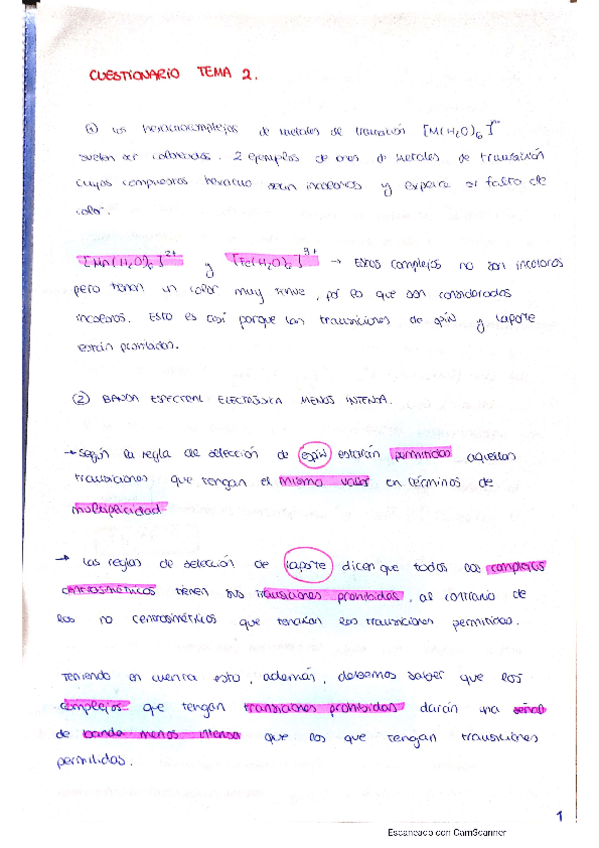 CUESTIONARIO TEMA 2.
① Los hexaacuocomplejos de metales de transición [M(H₂O)₆]ⁿ⁺
suelen ser coloreados. 2 ejemplos de iones de metales de transición
cuyos compuestos hexacuo sean incoloros y explica su falta de
color.
[Mn(H₂O)₆]²⁺ y [Fe(H₂O)₆]³⁺ → Estos complejos no son incoloros
pero tienen un color muy tenue, por lo que son considerados
incoloros. Esto es así porque las transiciones de spin y Laporte
están prohibidas.
② BANDA ESPECTRAL ELECTRÓNICA MENOS INTENSA.
→ Según la regla de selección de espín estarán permitidas aquellas
transiciones que tengan el mismo valor en términos de
multiplicidad
→ Las reglas de selección de Laporte dicen que todos los complejos
centrosimétricos tienen sus transiciones prohibidas, al contrario de
los no centrosimétricos que tendrán las transiciones permitidas.
Teniendo en cuenta esto, además, debemos saber que los
complejos que tengan transiciones prohibidas darán una señal
de banda menos intensa que los que tengan transiciones
permitidas.
1
Escaneado con CamScanner